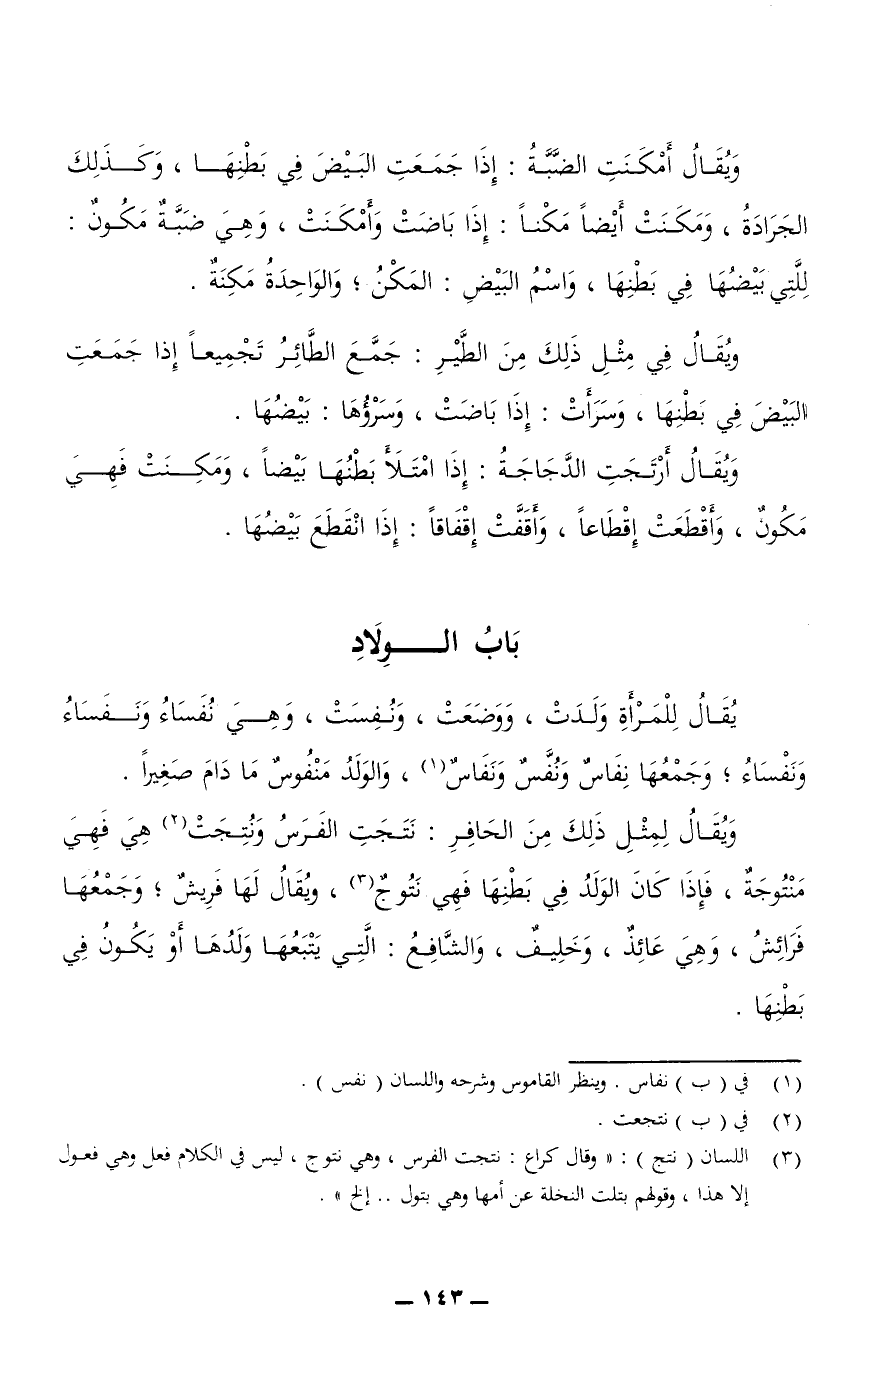 وَيُقَالُ أَمْكَنَتِ الضَّبَّةُ : إِذَا جَمَعَتِ البَيْضَ فِي بَطْنِهَا ، وَكَذلِكَ
الجَرَادَةُ ، وَمَكَنَتْ أَيْضاً مَكْناً : إِذَا بَاضَتْ وَأَمْكَنَتْ ، وَهِيَ ضَبَّةٌ مَكُونٌ :
لِلَّتِي بَيْضُهَا فِي بَطْنِهَا ، وَاسْمُ البَيْضِ : المَكْنُ ؛ وَالوَاحِدَةُ مَكِنَةٌ .
ويُقَالُ فِي مِثْلِ ذَلِكَ مِنَ الطَّيْرِ : جَمَّعَ الطَّائِرُ تَجْمِيعاً إِذا جَمَعَتِ
البَيْضَ فِي بَطْنِهَا ، وَسَرَأَتْ : إِذَا بَاضَتْ ، وَسَرْؤُهَا : بَيْضُهَا .
وَيُقَالُ أَرْتَجَتِ الدَّجَاجَةُ : إِذَا امْتَلَأَ بَطْنُهَا بَيْضاً ، وَمَكِنَتْ فَهِيَ
مَكُونٌ ، وَأَقْطَعَتْ إِقْطَاعاً ، وَأَقَفَّتْ إِقْفَاقاً : إِذَا انْقَطَعَ بَيْضُهَا .
بَابُ الوِلَادِ
يُقَالُ لِلْمَرْأَةِ وَلَدَتْ ، وَوَضَعَتْ ، وَنُفِسَتْ ، وَهِيَ نُفَسَاءُ وَنَفَسَاءُ
وَنَفْسَاءُ ؛ وَجَمْعُهَا نِفَاسٌ وَنُفَّسٌ وَنَفَاسٌ(١) ، وَالوَلَدُ مَنْفُوسٌ مَا دَامَ صَغِيراً .
وَيُقَالُ لِمِثْلِ ذَلِكَ مِنَ الحَافِرِ : نَتَجَتِ الفَرَسُ وَنُتِجَتْ(٢) هِيَ فَهِيَ
مَنْتُوجَةٌ ، فَإِذَا كَانَ الوَلَدُ فِي بَطْنِهَا فَهِي نَتُوجٌ(٣) ، ويُقَالُ لَهَا فَرِيشٌ ؛ وَجَمْعُهَا
فَرَائِشُ ، وَهِيَ عَائِذٌ ، وَخَلِيفٌ ، وَالشَّافِعُ : الَّتِي يَتْبَعُهَا وَلَدُهَا أَوْ يَكُونُ فِي
بَطْنِهَا .
(١) في ( ب ) نفاس . وينظر القاموس وشرحه واللسان ( نفس ) .
(٢) في ( ب ) نتجعت .
(٣) اللسان ( نتج ) : « وقال كراع : نتجت الفرس ، وهي نتوج ، ليس في الكلام فعل وهي فعول
إلا هذا ، وقولهم بتلت النخلة عن أمها وهي بتول .. إلخ » .
ـ ١٤٣ ـ